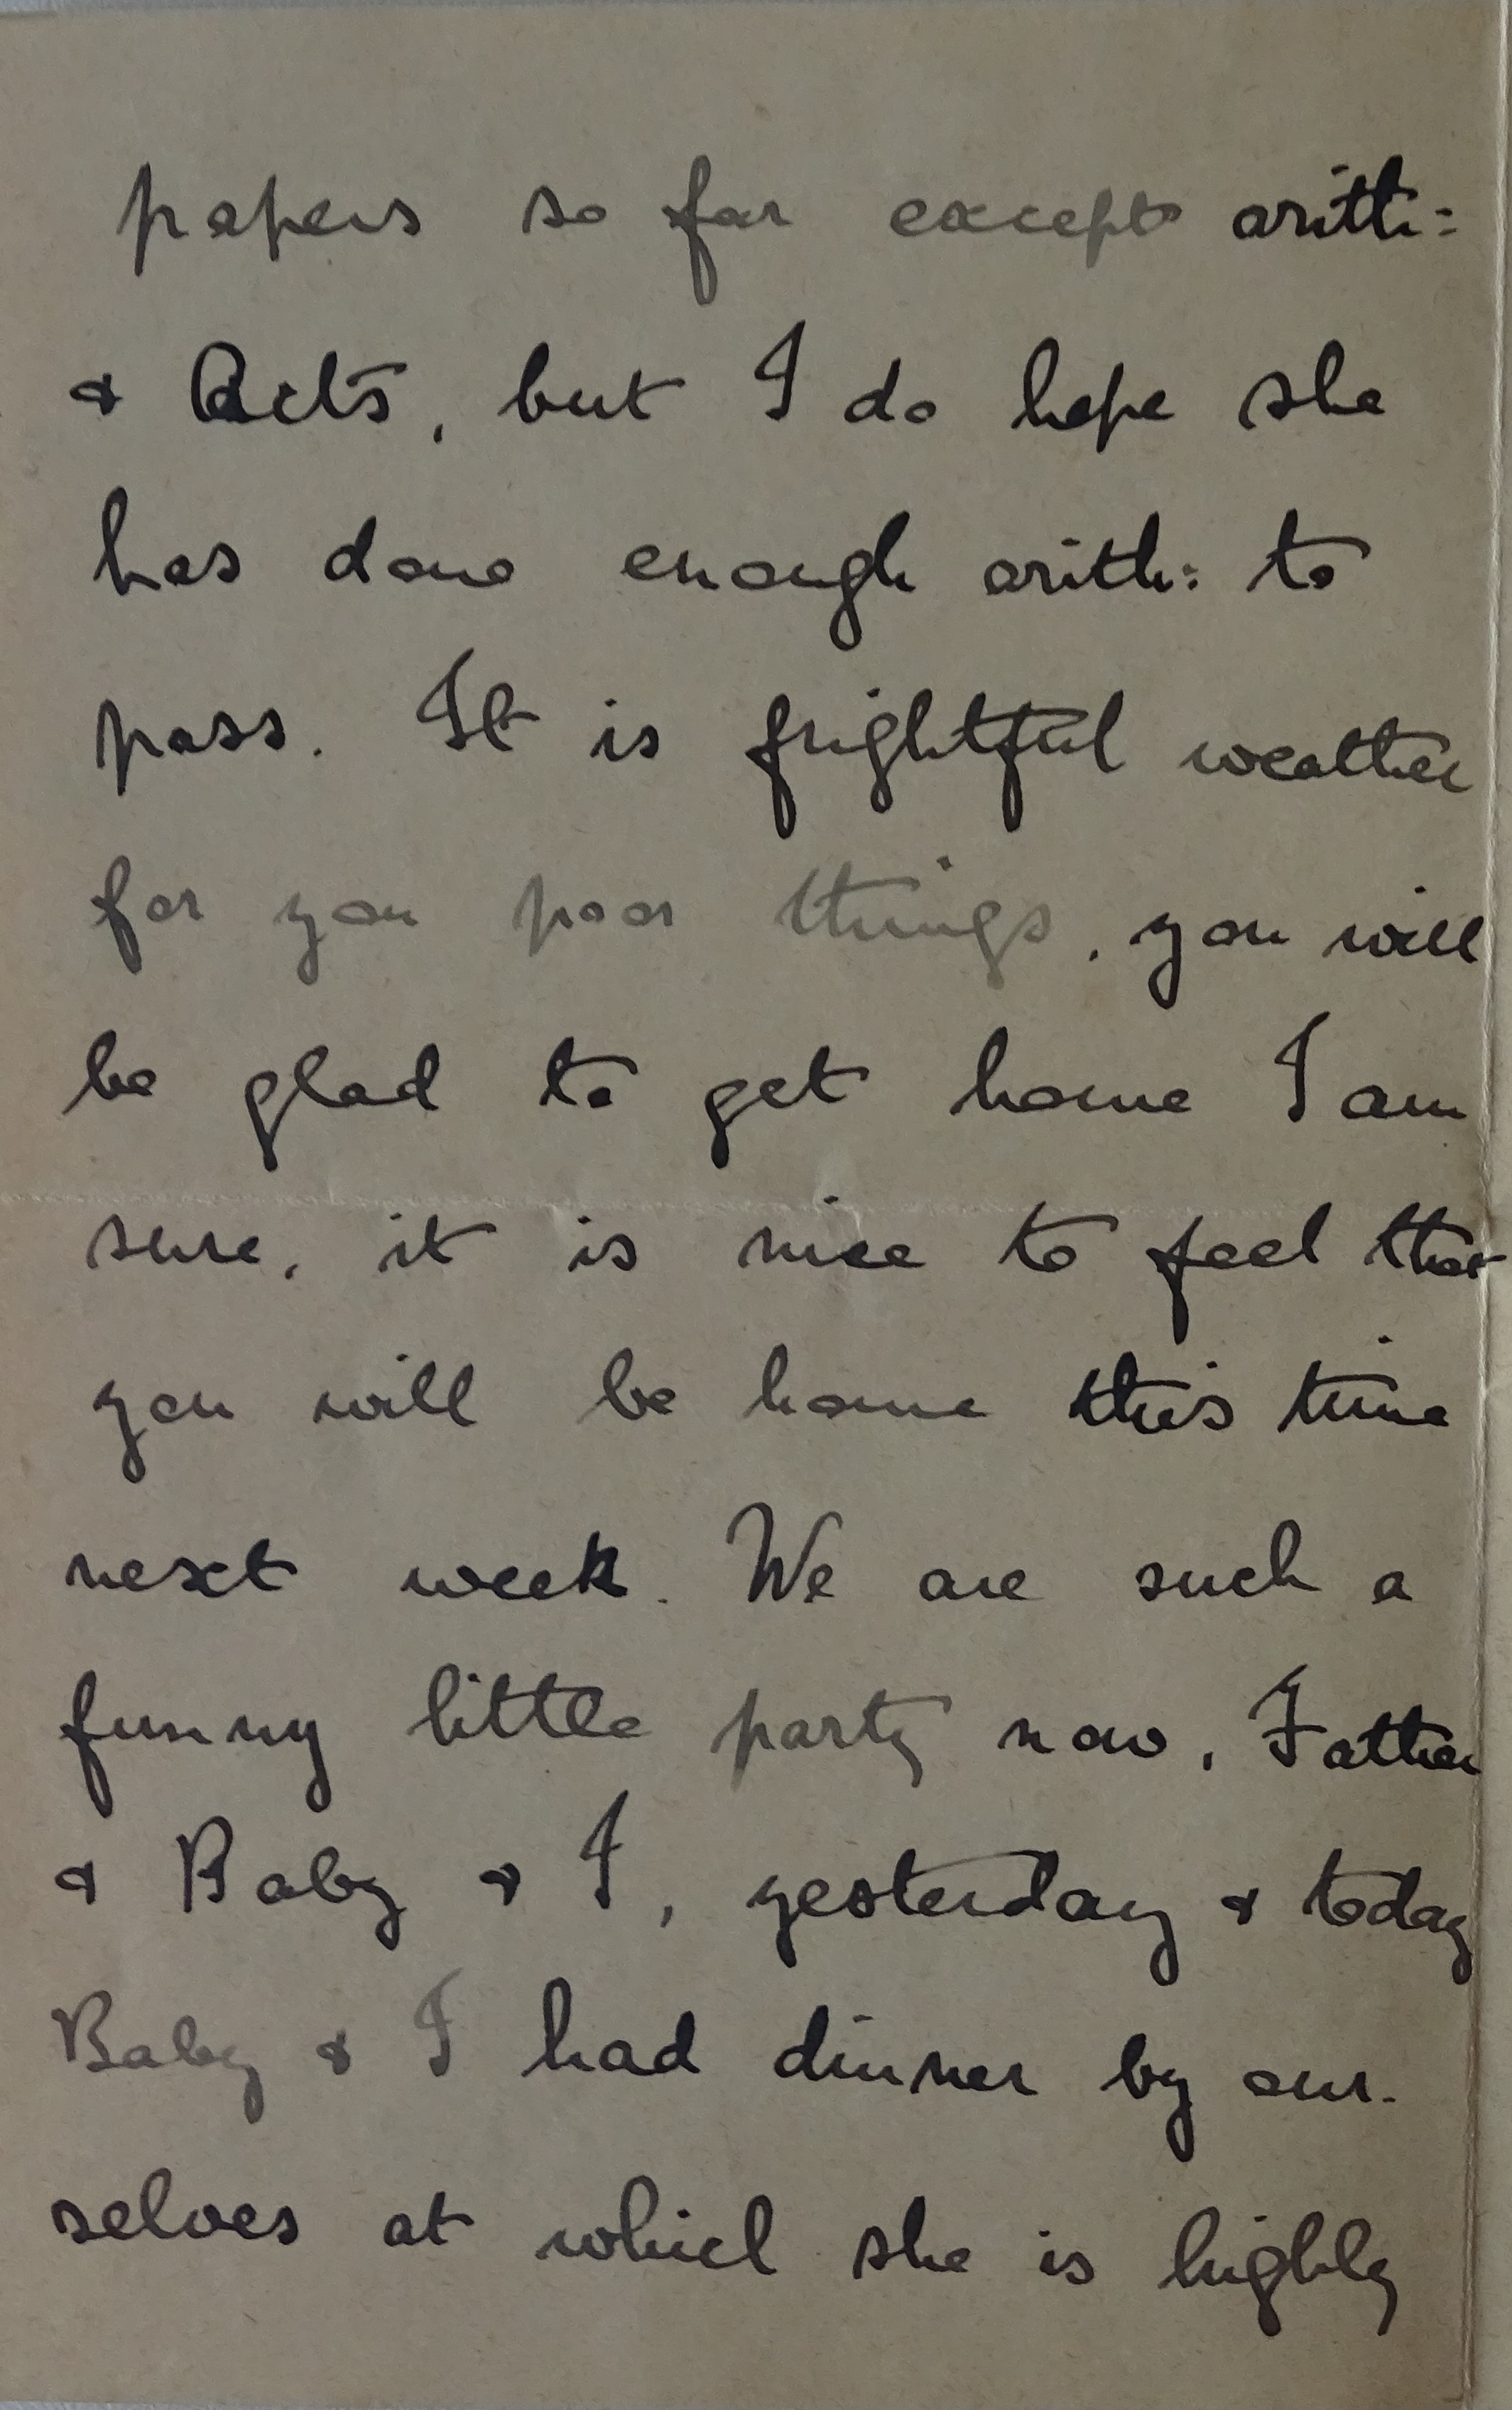 papers so far except arith:
& Acts, but I do hope she
has done enough arith: to
pass. It is frightful weather
for you poor things, you will
be glad to get home I am
sure, it is nice to feel that
you will be home this time
next week. We are such a
funny little party now, Father
& Baby & I, yesterday & today
Baby & I had dinner by our-
selves at which she is highly